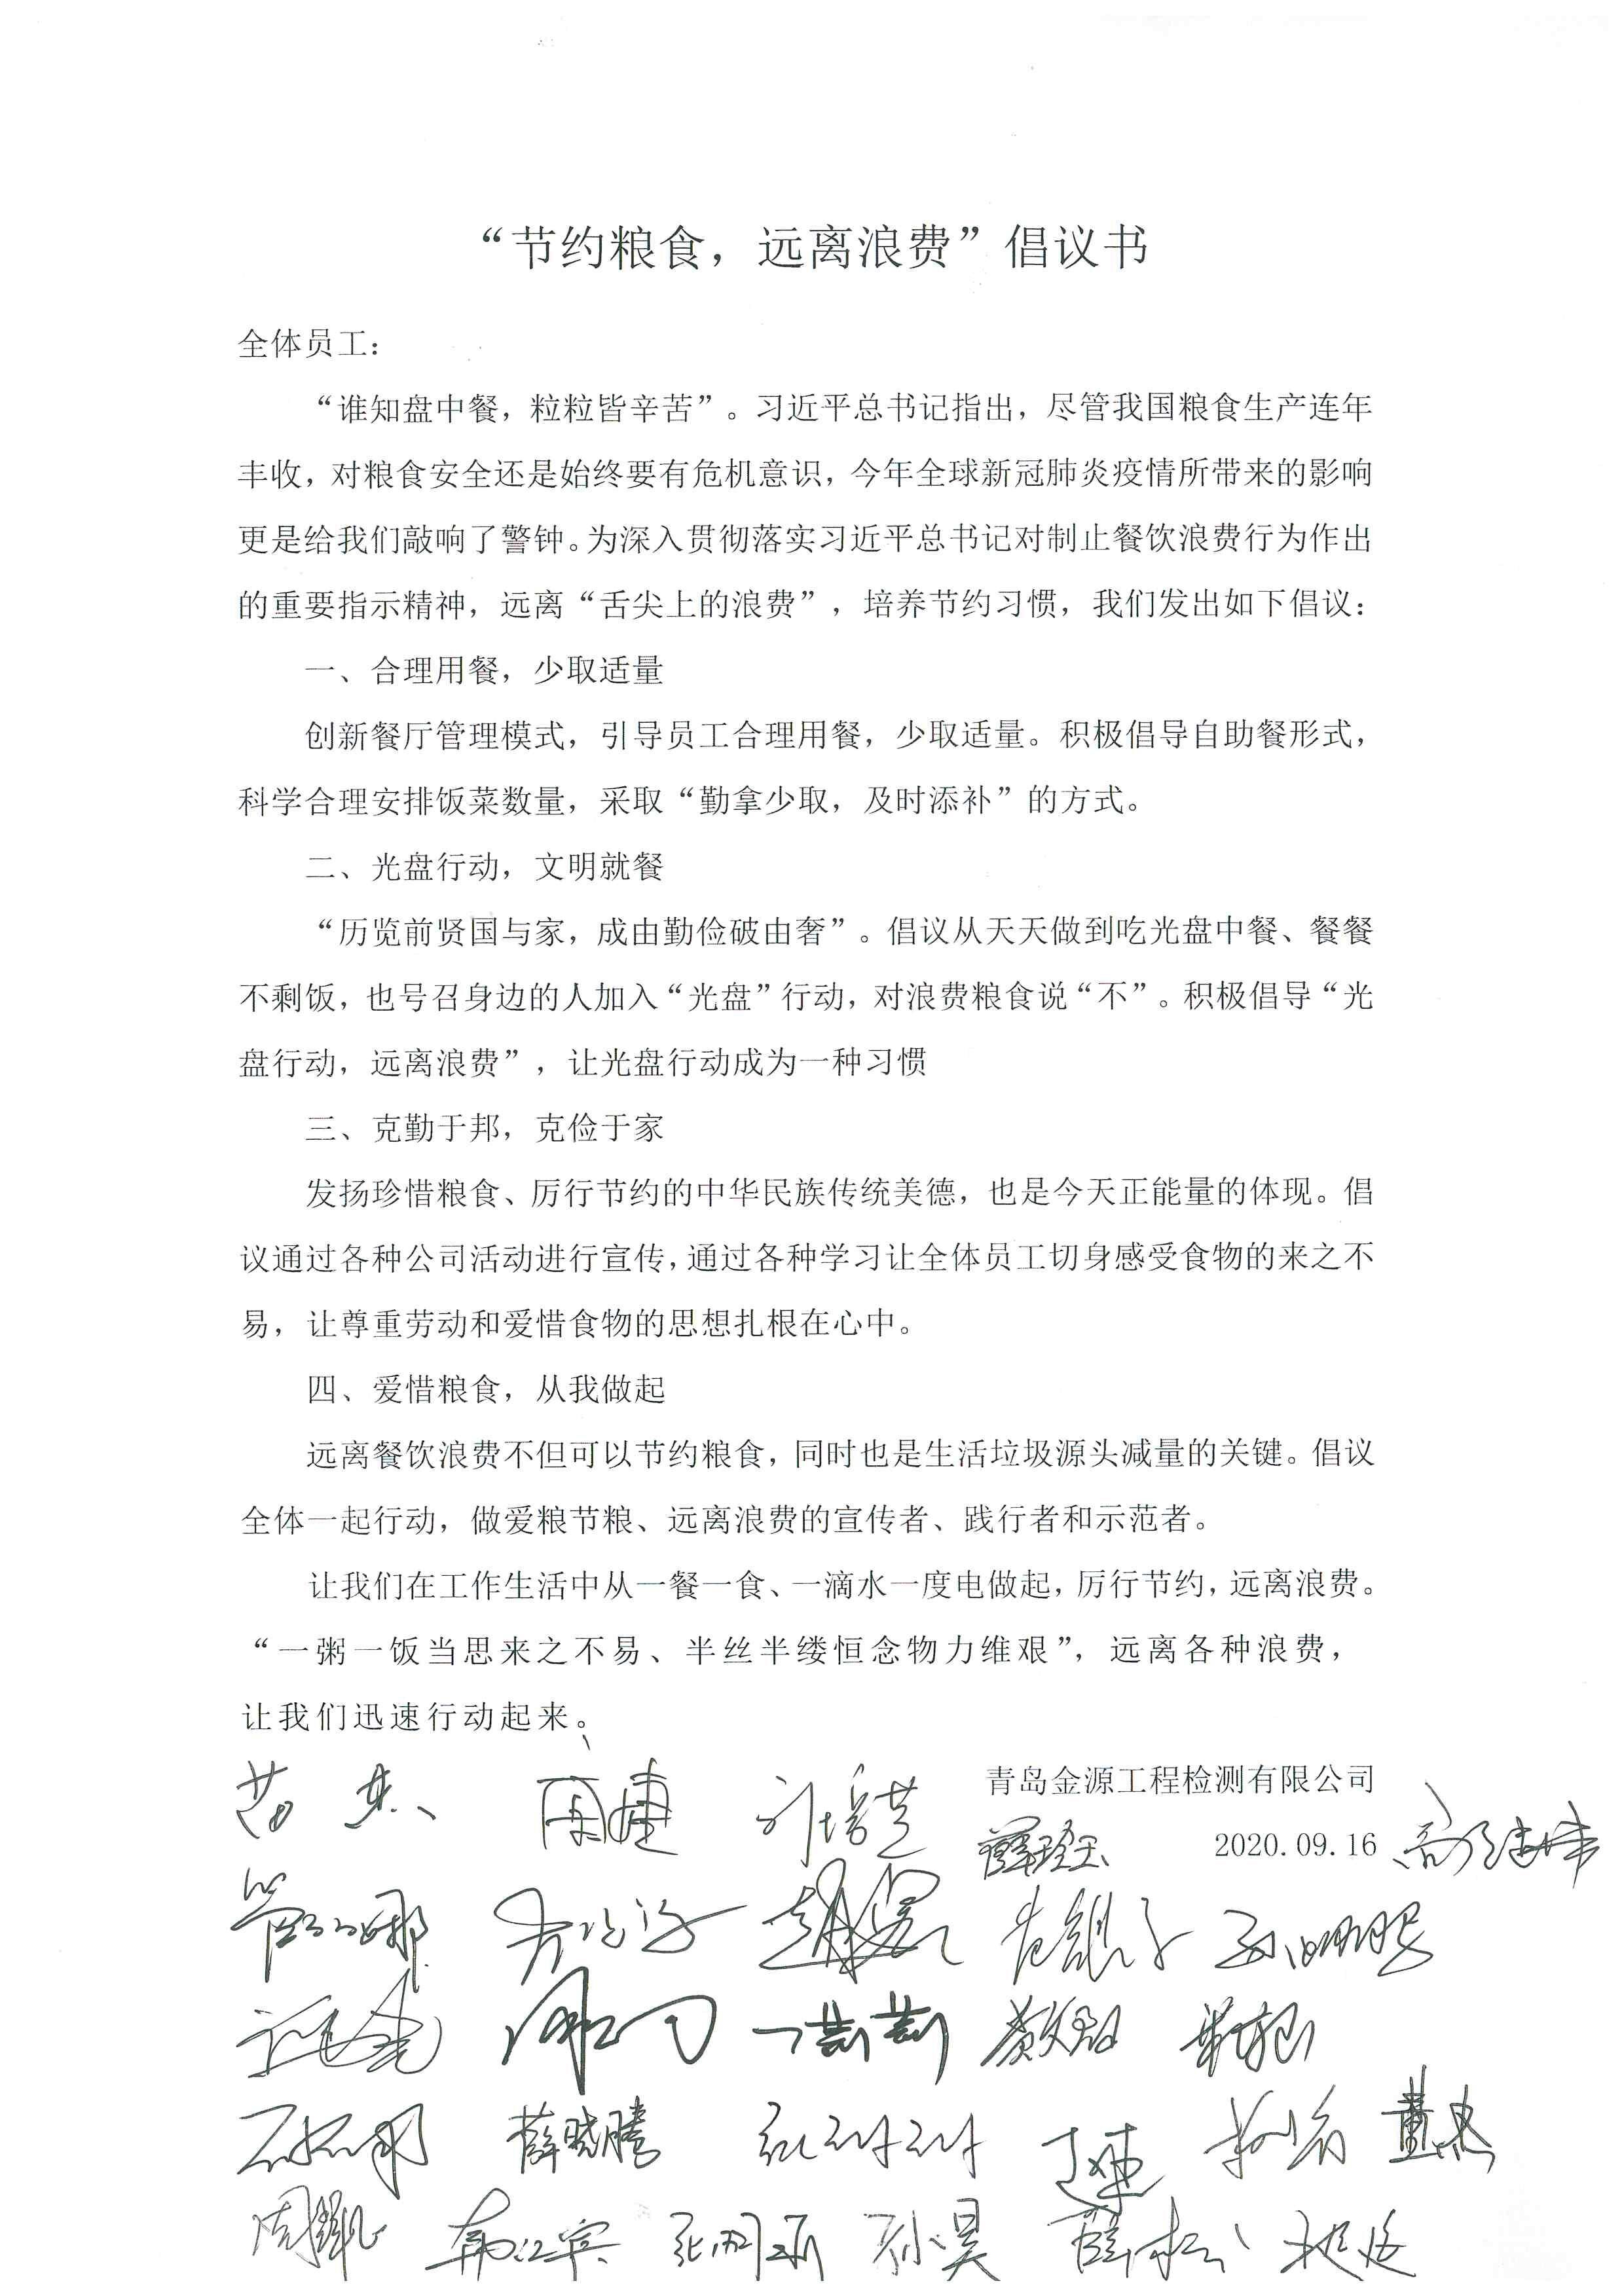 “节约粮食，远离浪费”倡议书
全体员工：
“谁知盘中餐，粒粒皆辛苦”。习近平总书记指出，尽管我国粮食生产连年
丰收，对粮食安全还是始终要有危机意识，今年全球新冠肺炎疫情所带来的影响
更是给我们敲响了警钟。为深入贯彻落实习近平总书记对制止餐饮浪费行为作出
的重要指示精神，远离“舌尖上的浪费”，培养节约习惯，我们发出如下倡议：
一、合理用餐，少取适量
创新餐厅管理模式，引导员工合理用餐，少取适量。积极倡导自助餐形式，
科学合理安排饭菜数量，采取“勤拿少取，及时添补”的方式。
二、光盘行动，文明就餐
“历览前贤国与家，成由勤俭破由奢”。倡议从天天做到吃光盘中餐、餐餐
不剩饭，也号召身边的人加入“光盘”行动，对浪费粮食说“不”。积极倡导“光
盘行动，远离浪费”，让光盘行动成为一种习惯
三、克勤于邦，克俭于家
发扬珍惜粮食、厉行节约的中华民族传统美德，也是今天正能量的体现。倡
议通过各种公司活动进行宣传，通过各种学习让全体员工切身感受食物的来之不
易，让尊重劳动和爱惜食物的思想扎根在心中。
四、爱惜粮食，从我做起
远离餐饮浪费不但可以节约粮食，同时也是生活垃圾源头减量的关键。倡议
全体一起行动，做爱粮节粮、远离浪费的宣传者、践行者和示范者。
让我们在工作生活中从一餐一食、一滴水一度电做起，厉行节约，远离浪费。
“一粥一饭当思来之不易、半丝半缕恒念物力维艰”，远离各种浪费，
让我们迅速行动起来。
青岛金源工程检测有限公司
2020.09.16
薛晓腾
丁建
董杰
周凯
孙昊
薛松